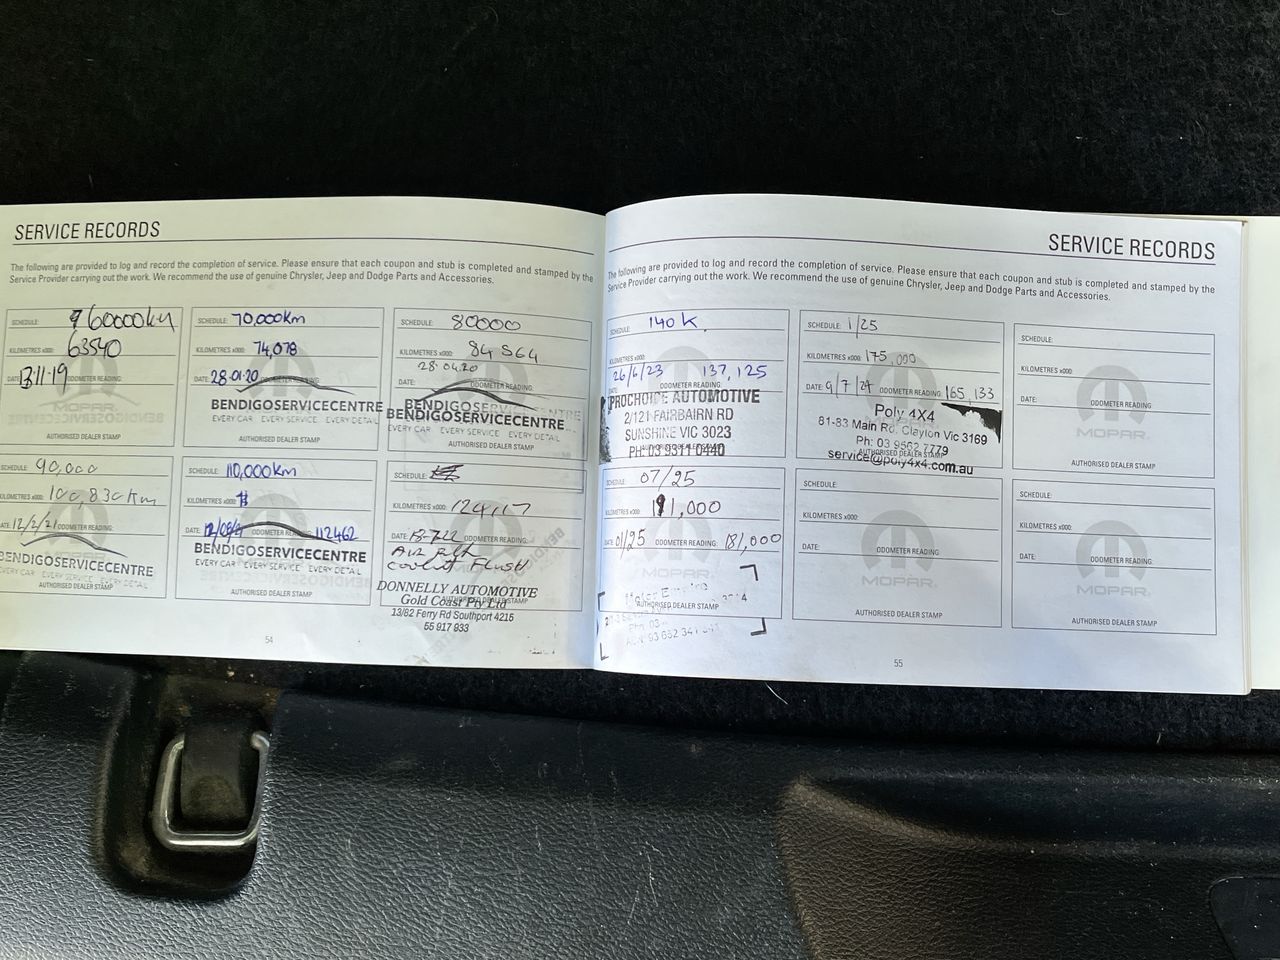 SERVICE RECORDS
The following are provided to log and record the completion of service. Please ensure that each coupon and stub is completed and stamped by the
Service Provider carrying out the work. We recommend the use of genuine Chrysler, Jeep and Dodge Parts and Accessories.
60000km
63540
13·11·19
ODOMETER READING:
MOPAR
AUTHORISED DEALER STAMP
SCHEDULE: 70,000km
KILOMETRES x000: 74,078
DATE: 28·01·20
BENDIGOSERVICECENTRE
EVERY CAR EVERY SERVICE EVERY DETAIL
AUTHORISED DEALER STAMP
SCHEDULE: 80000
KILOMETRES x000: 84 564
28·04·20
DATE: ODOMETER READING:
BENDIGOSERVICECENTRE
EVERY CAR EVERY SERVICE EVERY DETAIL
AUTHORISED DEALER STAMP
SCHEDULE: 90,000
KILOMETRES x000: 100,830km
DATE: 12/2/21 ODOMETER READING:
BENDIGOSERVICECENTRE
EVERY CAR EVERY SERVICE EVERY DETAIL
AUTHORISED DEALER STAMP
SCHEDULE: 110,000km
KILOMETRES x000:
DATE: ODOMETER READING: 112462
BENDIGOSERVICECENTRE
EVERY CAR EVERY SERVICE EVERY DETAIL
AUTHORISED DEALER STAMP
SCHEDULE:
KILOMETRES x000:
DATE: ODOMETER READING:
Coolant Flush
DONNELLY AUTOMOTIVE
Gold Coast Pty Ltd
13/82 Ferry Rd Southport 4215
55 917 933
54
SERVICE RECORDS
The following are provided to log and record the completion of service. Please ensure that each coupon and stub is completed and stamped by the
Service Provider carrying out the work. We recommend the use of genuine Chrysler, Jeep and Dodge Parts and Accessories.
SCHEDULE: 140K
KILOMETRES x000:
26/6/23 137,125
ODOMETER READING:
PROCHOICE AUTOMOTIVE
2/121 FAIRBAIRN RD
SUNSHINE VIC 3023
PH: 03 9311 0440
SCHEDULE: 1/25
KILOMETRES x000: 175,000
DATE: 9/7/24 ODOMETER READING: 165,133
Poly 4X4
81-83 Main Rd, Clayton Vic 3169
Ph: 03 9562 7779
AUTHORISED DEALER STAMP
service@poly4x4.com.au
SCHEDULE:
KILOMETRES x000:
DATE: ODOMETER READING:
MOPAR
AUTHORISED DEALER STAMP
SCHEDULE: 07/25
KILOMETRES x000: 191,000
DATE: 01/25 ODOMETER READING: 181,000
MOPAR
AUTHORISED DEALER STAMP
SCHEDULE:
KILOMETRES x000:
DATE: ODOMETER READING:
MOPAR
AUTHORISED DEALER STAMP
SCHEDULE:
KILOMETRES x000:
DATE: ODOMETER READING:
MOPAR
AUTHORISED DEALER STAMP
55